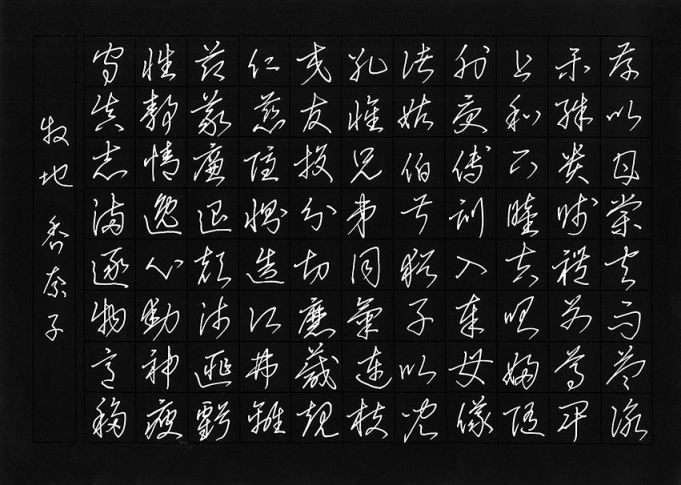 存以甘棠去而益詠
樂殊貴賤禮別尊卑
上和下睦夫唱婦随
外受傅訓入奉母儀
諸姑伯叔猶子比児
孔懐兄弟同氣連枝
交友投分切磨箴規
仁慈隠惻造次弗離
節義廉退顛沛匪虧
性静情逸心動神疲
守真志満逐物意移
牧地 香奈子